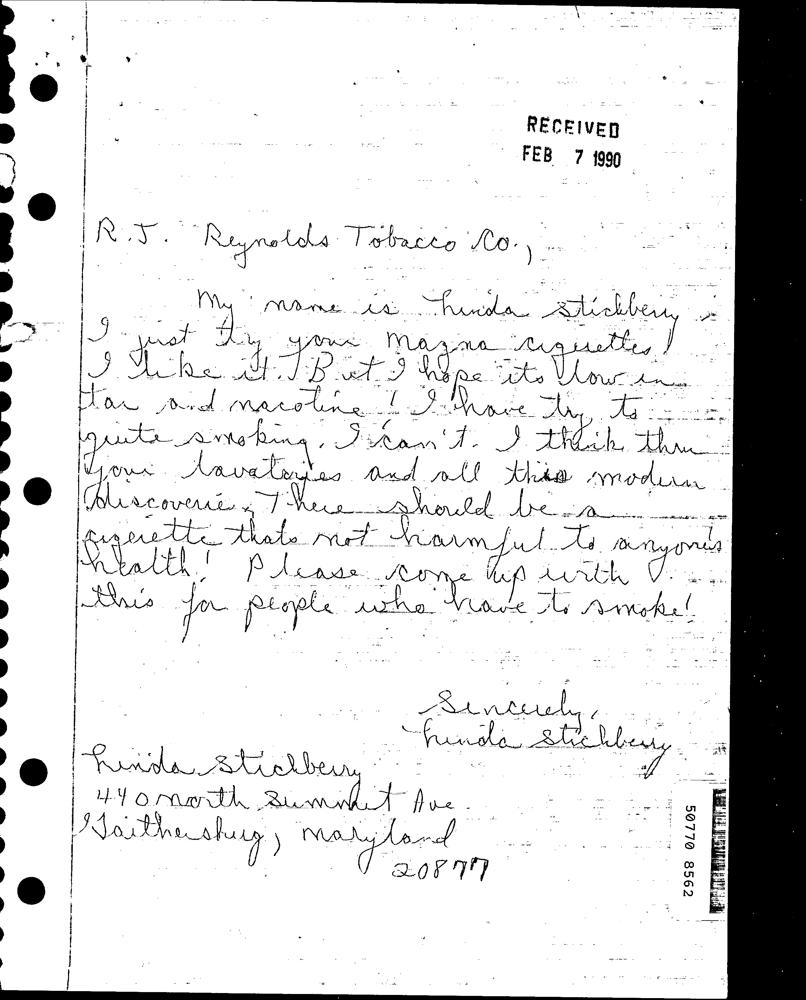 RECEIVED
FEB 7 1990
R.J. Reynolds Tobacco Co.,
My name is Linda Stickberry.
I just try your Magna cigerettes!
I like it. But I hope its low in
tar and nacotine! I have try to
quite smoking. I can't. I think thru
your lavatories and all this modern
discoveries. There should be a
cigerette thats not harmful to anyones
health! Please come up with
this for people who have to smoke!
Sincerely,
Linda Stickberry
Linda Stickberry
440 North Summit Ave.
Gaithersburg, Maryland
20877
50770 8562